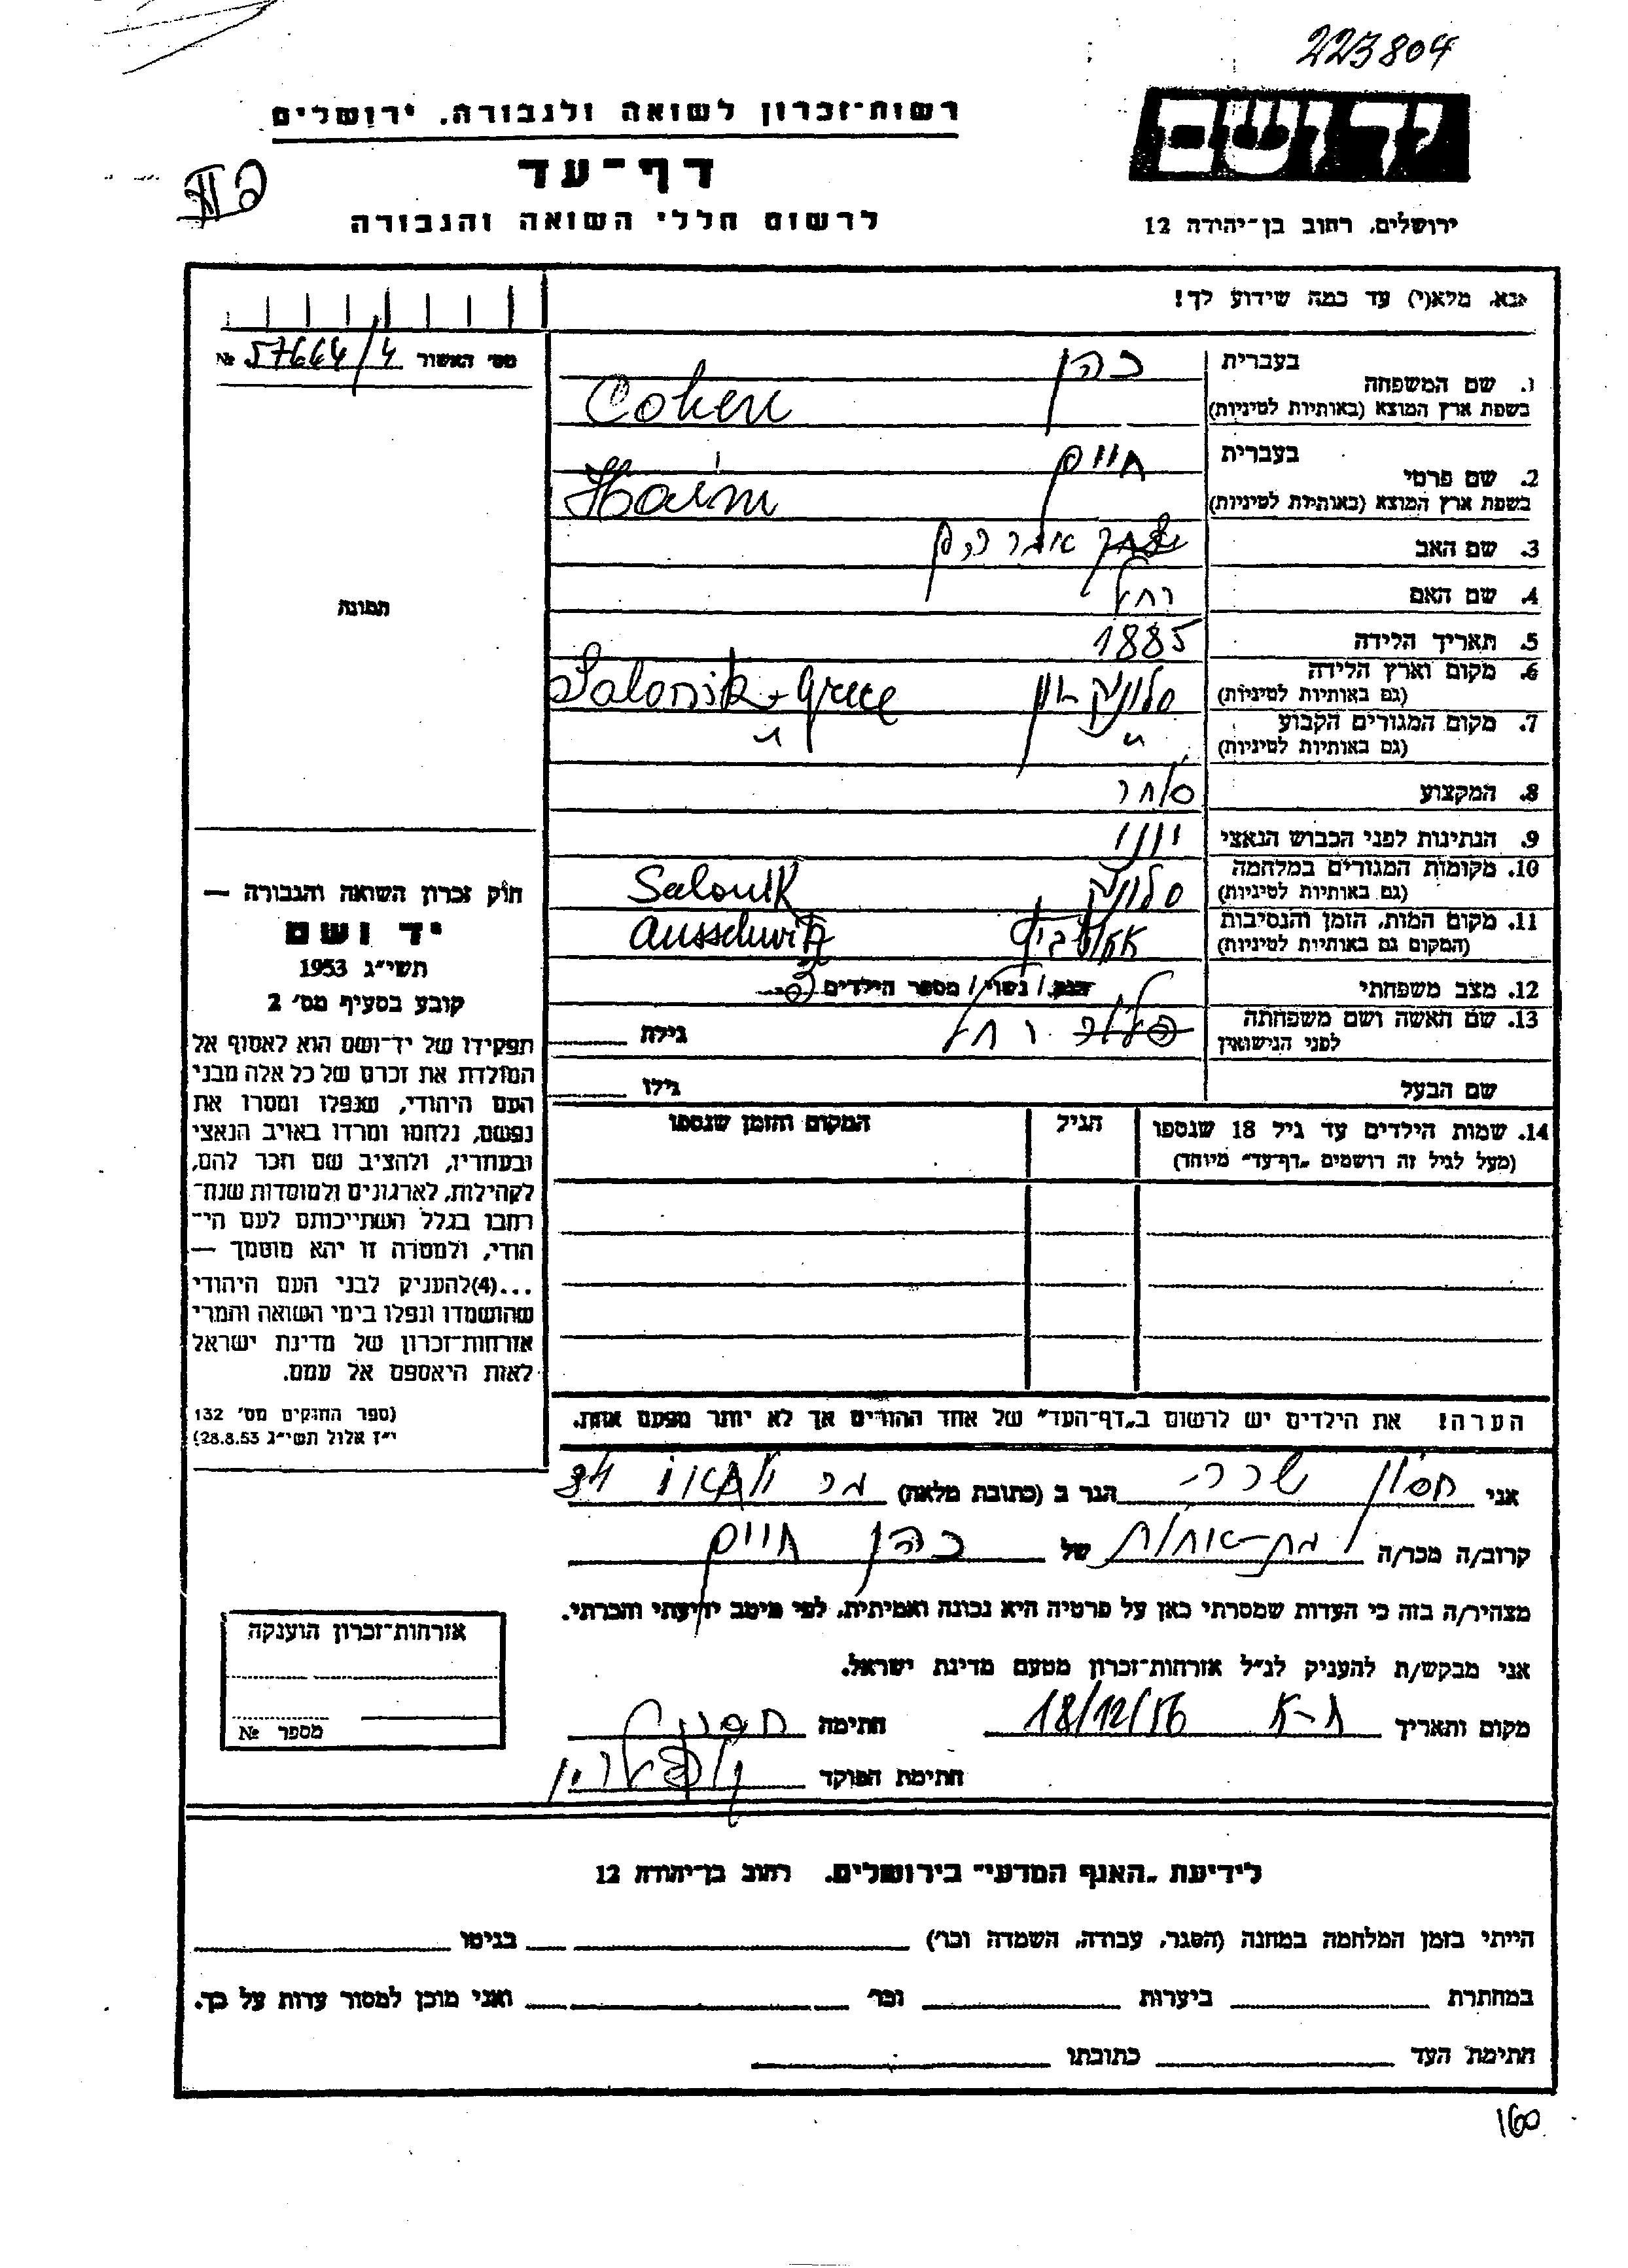 223804
יד ושם
רשות־זכרון לשואה ולגבורה, ירושלים
דף־עד
לרשום חללי השואה והגבורה
ירושלים, רחוב בן־יהודה 12
נא, מלא(י) עד כמה שידוע לך!
מס׳ האשור 57664/4 №
תמונה
בעברית כהן
1. שם המשפחה
בשפת ארץ המוצא (באותיות לטיניות) Cohen
בעברית חיים
2. שם פרטי
בשפת ארץ המוצא (באותיות לטיניות) Haim
3. שם האב יצחק אברהם
4. שם האם רחל
5. תאריך הלידה 1885
6. מקום וארץ הלידה סלוניק יון Salonik - Grece
(גם באותיות לטיניות)
7. מקום המגורים הקבוע " "
(גם באותיות לטיניות)
8. המקצוע סוחר
9. הנתינות לפני הכבוש הנאצי יווני
10. מקומות המגורים במלחמה סלוניק Salonik
(גם באותיות לטיניות)
11. מקום המות, הזמן והנסיבות אאושביץ Ausschwitz
(המקום גם באותיות לטיניות)
12. מצב משפחתי רווק / נשוי / מספר הילדים
13. שם האשה ושם משפחתה רחל גילה
לפני הנישואין
שם הבעל גילו
14. שמות הילדים עד גיל 18 שנספו הגיל המקום והזמן שנספו
(מעל לגיל זה רושמים „דף־עד" מיוחד)
הערה! את הילדים יש לרשום ב„דף־העד" של אחד ההורים אך לא יותר מפעם אחת.
חוק זכרון השואה והגבורה —
יד ושם
תשי״ג 1953
קובע בסעיף מס׳ 2
תפקידו של יד־ושם הוא לאסוף אל
המולדת את זכרם של כל אלה מבני
העם היהודי, שנפלו ומסרו את
נפשם, נלחמו ומרדו באויב הנאצי
ובעוזריו, ולהציב שם וזכר להם,
לקהילות, לארגונים ולמוסדות שנח־
רבו בגלל השתייכותם לעם הי־
הודי, ולמטרה זו יהא מוסמך —
...(4)להעניק לבני העם היהודי
שהושמדו ונפלו בימי השואה והמרי
אזרחות־זכרון של מדינת ישראל
לאות היאספם אל עמם.
(ספר החוקים מס׳ 132
י״ז אלול תשי״ג 28.8.53)
אני חסון שרה הגר ב (כתובת מלאה) 34
קרוב/ה מכר/ה בת-אחות של כהן חיים
מצהיר/ה בזה כי העדות שמסרתי כאן על פרטיה היא נכונה ואמיתית, לפי מיטב ידיעתי והכרתי.
אני מבקש/ת להעניק לנ״ל אזרחות־זכרון מטעם מדינת ישראל.
מקום ותאריך ת-א 18/12/56 חתימה חסון
חתימת הפוקד
אזרחות־זכרון הוענקה
מספר №
לידיעת „האגף המדעי" בירושלים. רחוב בן־יהודה 12
הייתי בזמן המלחמה במחנה (הסגר, עבודה, השמדה וכו׳) בגיטו
במחתרת ביערות וכו׳ ואני מוכן למסור עדות על כך.
חתימת העד כתובתו
160